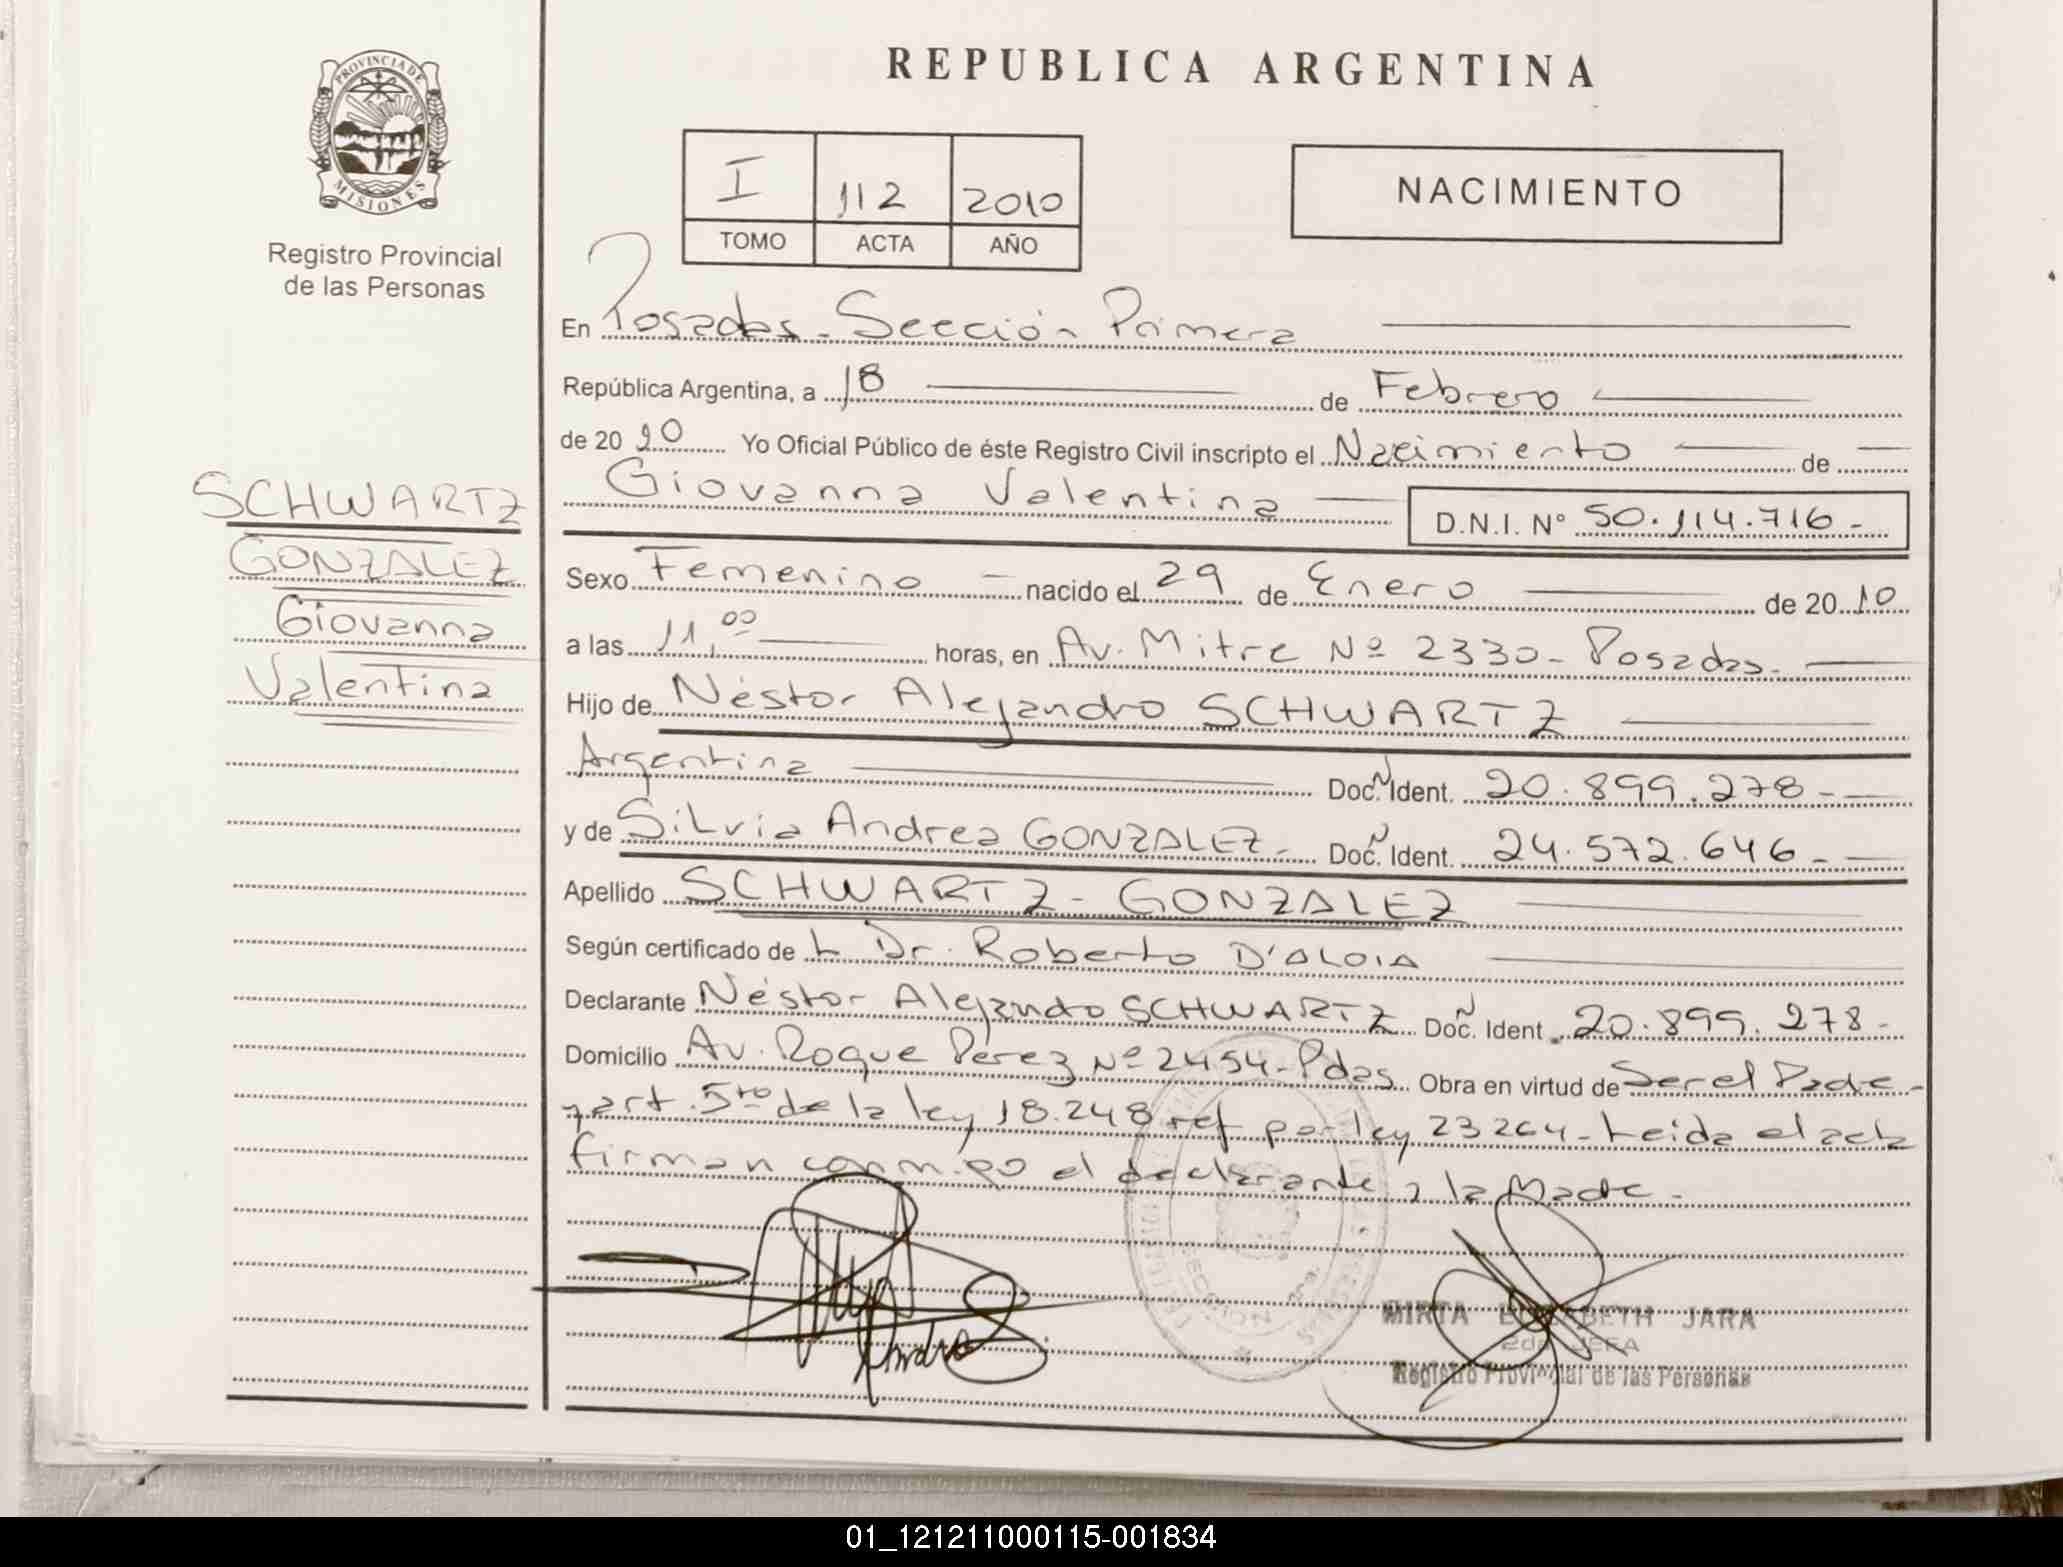 PROVINCIA DE
MISIONES
Registro Provincial
de las Personas
SCHWARTZ
GONZALEZ
Giovanna
Valentina
REPUBLICA ARGENTINA
I 112 2010
TOMO ACTA AÑO
NACIMIENTO
En Posadas - Sección Primera
República Argentina, a 18 de Febrero
de 20 10 Yo Oficial Público de éste Registro Civil inscripto el Nacimiento de
Giovanna Valentina D.N.I. N° 50.114.716-
Sexo Femenino nacido el 29 de Enero de 20 10
a las 11,00 horas, en Av. Mitre Nº 2330- Posadas-
Hijo de Néstor Alejandro SCHWARTZ
Argentina Doc. Ident. 20.899.278-
y de Silvia Andrea GONZALEZ- Doc. Ident. 24.572.646-
Apellido SCHWARTZ - GONZALEZ
Según certificado de L Dr. Roberto D'ALOIA
Declarante Néstor Alejandro SCHWARTZ Doc. Ident. 20.899.278-
Domicilio Av. Roque Perez Nº 2454- Pdas Obra en virtud de Ser el Padre-
y art. 5to de la ley 18.248 ref por ley 23264- Leida el acta
firman conmigo el declarante y la Madre-
SECCION
MIRTA ELISABETH JARA
2da JEFA
Registro Provincial de las Personas
01_121211000115-001834